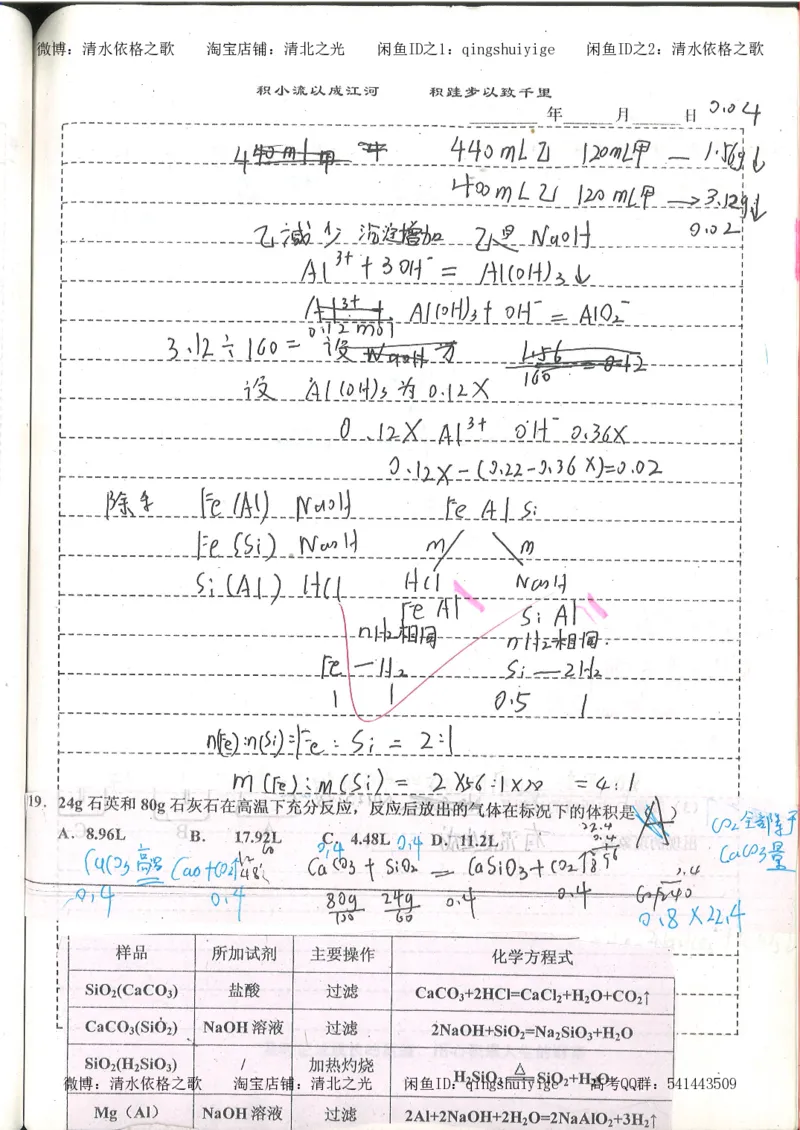 微博：清水依格之歌 淘宝店铺：清北之光 闲鱼ID之1：qingshuiyige 闲鱼ID之2：清水依格之歌
积小流以成江河 积跬步以致千里
年 月 日 0.04
440ml甲 440mL乙 120mL甲 — 1.56g↓
400mL乙 120mL甲 → 3.12g↓
乙减少 沉淀增加 乙是 NaOH 0.02
Al³⁺ + 3OH⁻ = Al(OH)₃↓
Al³⁺ Al(OH)₃ + OH⁻ = AlO₂⁻
0.12mol
3.12 ÷ 160 = 设 NaOH 为 1.56/160 = 0.12
设 Al(OH)₃ 为 0.12X
0.12X Al³⁺ OH⁻ 0.36X
0.12X-(0.22-0.36X)=0.02
除杂 Fe(Al) NaOH Fe Al Si
Fe(Si) NaOH m m
Si(Al) HCl HCl NaOH
Fe Al Si Al
nH₂相同 nH₂相同.
Fe — H₂ Si — 2H₂
1 1 0.5 1
n(Fe):n(Si)= Fe : Si = 2:1
m(Fe):m(Si) = 2×56:1×28 = 4:1
19．24g石英和80g石灰石在高温下充分反应，反应后放出的气体在标况下的体积是 A
A．8.96L B．17.92L C．4.48L D．11.2L
CO₂全部除于
CaCO₃量
CaCO₃ 高温 CaO+CO₂↑ CaCO₃ + SiO₂ = CaSiO₃+CO₂↑
0.4 0.4 80g 24g 0.4 0.4
100 60
0.8×22.4
样品 所加试剂 主要操作 化学方程式
SiO₂(CaCO₃) 盐酸 过滤 CaCO₃+2HCl=CaCl₂+H₂O+CO₂↑
CaCO₃(SiO₂) NaOH溶液 过滤 2NaOH+SiO₂=Na₂SiO₃+H₂O
SiO₂(H₂SiO₃) / 加热灼烧 H₂SiO₃ △ SiO₂+H₂O
微博：清水依格之歌 淘宝店铺：清北之光 闲鱼ID：qingshuiyige 高考QQ群：541443509
Mg（Al） NaOH溶液 过滤 2Al+2NaOH+2H₂O=2NaAlO₂+3H₂↑